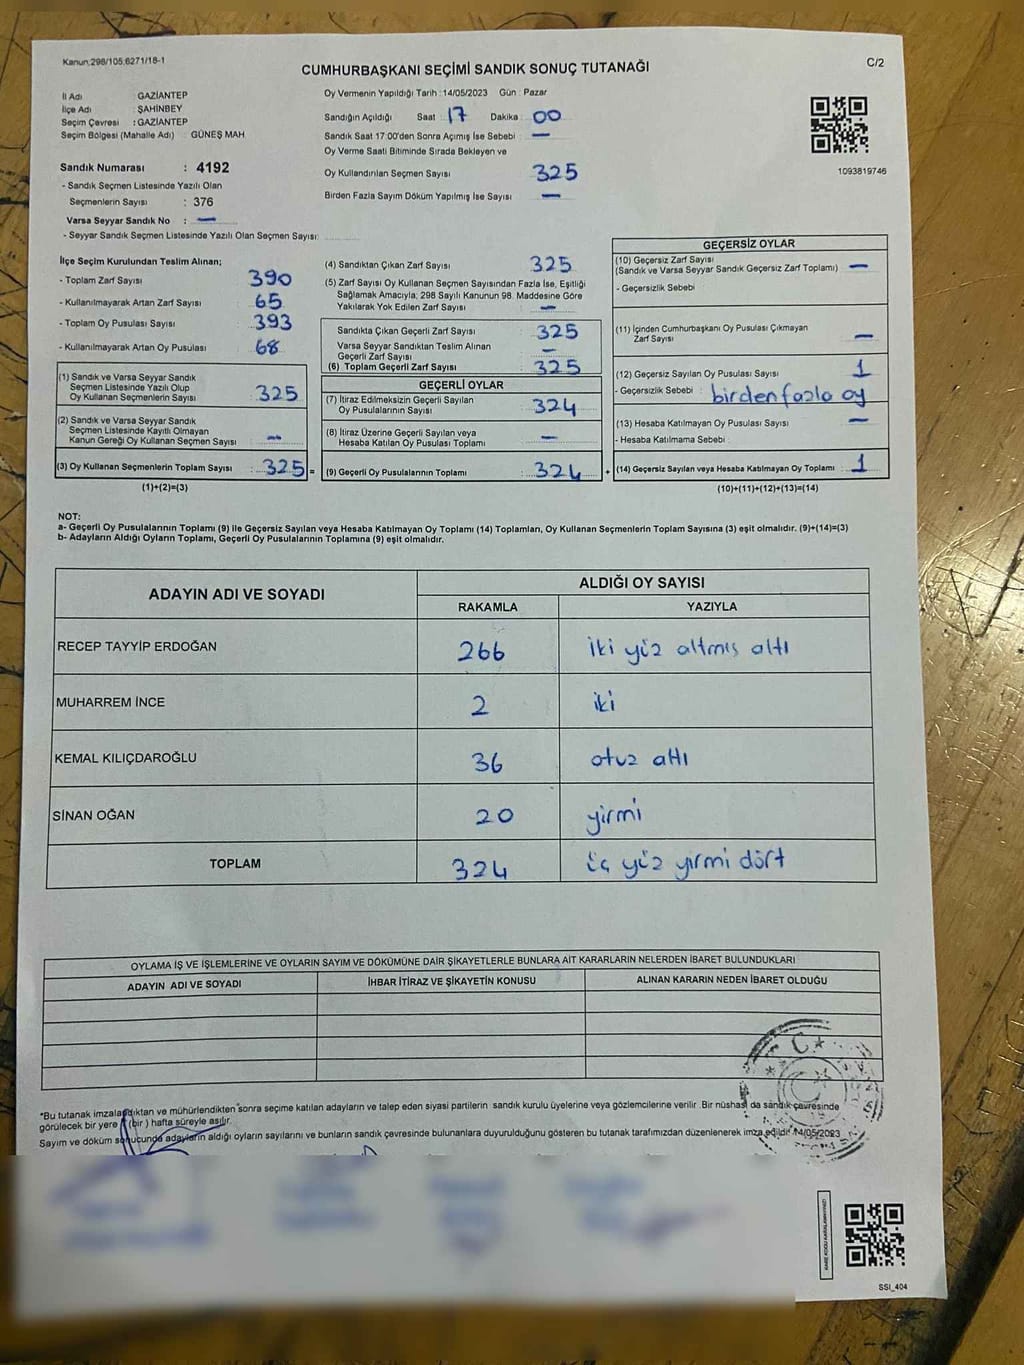 Kanun:298/105,6271/18-1
CUMHURBAŞKANI SEÇİMİ SANDIK SONUÇ TUTANAĞI
C/2
İl Adı : GAZİANTEP
İlçe Adı : ŞAHİNBEY
Seçim Çevresi : GAZİANTEP
Seçim Bölgesi (Mahalle Adı) : GÜNEŞ MAH
Sandık Numarası : 4192
- Sandık Seçmen Listesinde Yazılı Olan
Seçmenlerin Sayısı : 376
Varsa Seyyar Sandık No : —
- Seyyar Sandık Seçmen Listesinde Yazılı Olan Seçmen Sayısı:
Oy Vermenin Yapıldığı Tarih :14/05/2023 Gün : Pazar
Sandığın Açıldığı Saat 17 Dakika : 00
Sandık Saat 17.00'den Sonra Açımış İse Sebebi : —
Oy Verme Saati Bitiminde Sırada Bekleyen ve
Oy Kullandırılan Seçmen Sayısı : 325
Birden Fazla Sayım Döküm Yapılmış İse Sayısı : —
1093819746
İlçe Seçim Kurulundan Teslim Alınan;
- Toplam Zarf Sayısı : 390
- Kullanılmayarak Artan Zarf Sayısı : 65
- Toplam Oy Pusulası Sayısı : 393
- Kullanılmayarak Artan Oy Pusulası : 68
(1) Sandık ve Varsa Seyyar Sandık
Seçmen Listesinde Yazılı Olup
Oy Kullanan Seçmenlerin Sayısı : 325
(2) Sandık ve Varsa Seyyar Sandık
Seçmen Listesinde Kayıtlı Olmayan
Kanun Gereği Oy Kullanan Seçmen Sayısı : —
(3) Oy Kullanan Seçmenlerin Toplam Sayısı : 325 =
(1)+(2)=(3)
(4) Sandıktan Çıkan Zarf Sayısı : 325
(5) Zarf Sayısı Oy Kullanan Seçmen Sayısından Fazla İse, Eşitliği
Sağlamak Amacıyla; 298 Sayılı Kanunun 98. Maddesine Göre
Yakılarak Yok Edilen Zarf Sayısı : —
Sandıkta Çıkan Geçerli Zarf Sayısı : 325
Varsa Seyyar Sandıktan Teslim Alınan
Geçerli Zarf Sayısı : —
(6) Toplam Geçerli Zarf Sayısı : 325
GEÇERLİ OYLAR
(7) İtiraz Edilmeksizin Geçerli Sayılan
Oy Pusulalarının Sayısı : 324
(8) İtiraz Üzerine Geçerli Sayılan veya
Hesaba Katılan Oy Pusulası Toplamı : —
(9) Geçerli Oy Pusulalarının Toplamı : 324 +
GEÇERSİZ OYLAR
(10) Geçersiz Zarf Sayısı
(Sandık ve Varsa Seyyar Sandık Geçersiz Zarf Toplamı) : —
- Geçersizlik Sebebi :
(11) İçinden Cumhurbaşkanı Oy Pusulası Çıkmayan
Zarf Sayısı : —
(12) Geçersiz Sayılan Oy Pusulası Sayısı : 1
- Geçersizlik Sebebi : birden fazla oy
(13) Hesaba Katılmayan Oy Pusulası Sayısı : —
- Hesaba Katılmama Sebebi :
(14) Geçersiz Sayılan veya Hesaba Katılmayan Oy Toplamı : 1
(10)+(11)+(12)+(13)=(14)
NOT:
a- Geçerli Oy Pusulalarının Toplamı (9) ile Geçersiz Sayılan veya Hesaba Katılmayan Oy Toplamı (14) Toplamları, Oy Kullanan Seçmenlerin Toplam Sayısına (3) eşit olmalıdır. (9)+(14)=(3)
b- Adayların Aldığı Oyların Toplamı, Geçerli Oy Pusulalarının Toplamına (9) eşit olmalıdır.
ADAYIN ADI VE SOYADI ALDIĞI OY SAYISI
RAKAMLA YAZIYLA
RECEP TAYYİP ERDOĞAN 266 iki yüz altmış altı
MUHARREM İNCE 2 iki
KEMAL KILIÇDAROĞLU 36 otuz altı
SİNAN OĞAN 20 yirmi
TOPLAM 324 üç yüz yirmi dört
OYLAMA İŞ VE İŞLEMLERİNE VE OYLARIN SAYIM VE DÖKÜMÜNE DAİR ŞİKAYETLERLE BUNLARA AİT KARARLARIN NELERDEN İBARET BULUNDUKLARI
ADAYIN ADI VE SOYADI İHBAR İTİRAZ VE ŞİKAYETİN KONUSU ALINAN KARARIN NEDEN İBARET OLDUĞU
T.C.
*Bu tutanak imzalandıktan ve mühürlendikten sonra seçime katılan adayların ve talep eden siyasi partilerin sandık kurulu üyelerine veya gözlemcilerine verilir. Bir nüshası da sandık çevresinde
görülecek bir yere (bir ) hafta süreyle asılır.
Sayım ve döküm sonucunda adayların aldığı oyların sayılarını ve bunların sandık çevresinde bulunanlara duyurulduğunu gösteren bu tutanak tarafımızdan düzenlenerek imza edildi. 14/05/2023
SSI_404